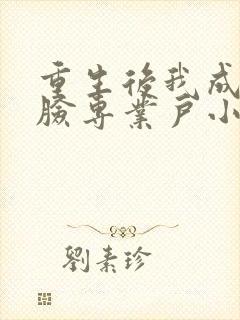 重生後我成
臉專業戶小
劉素珍